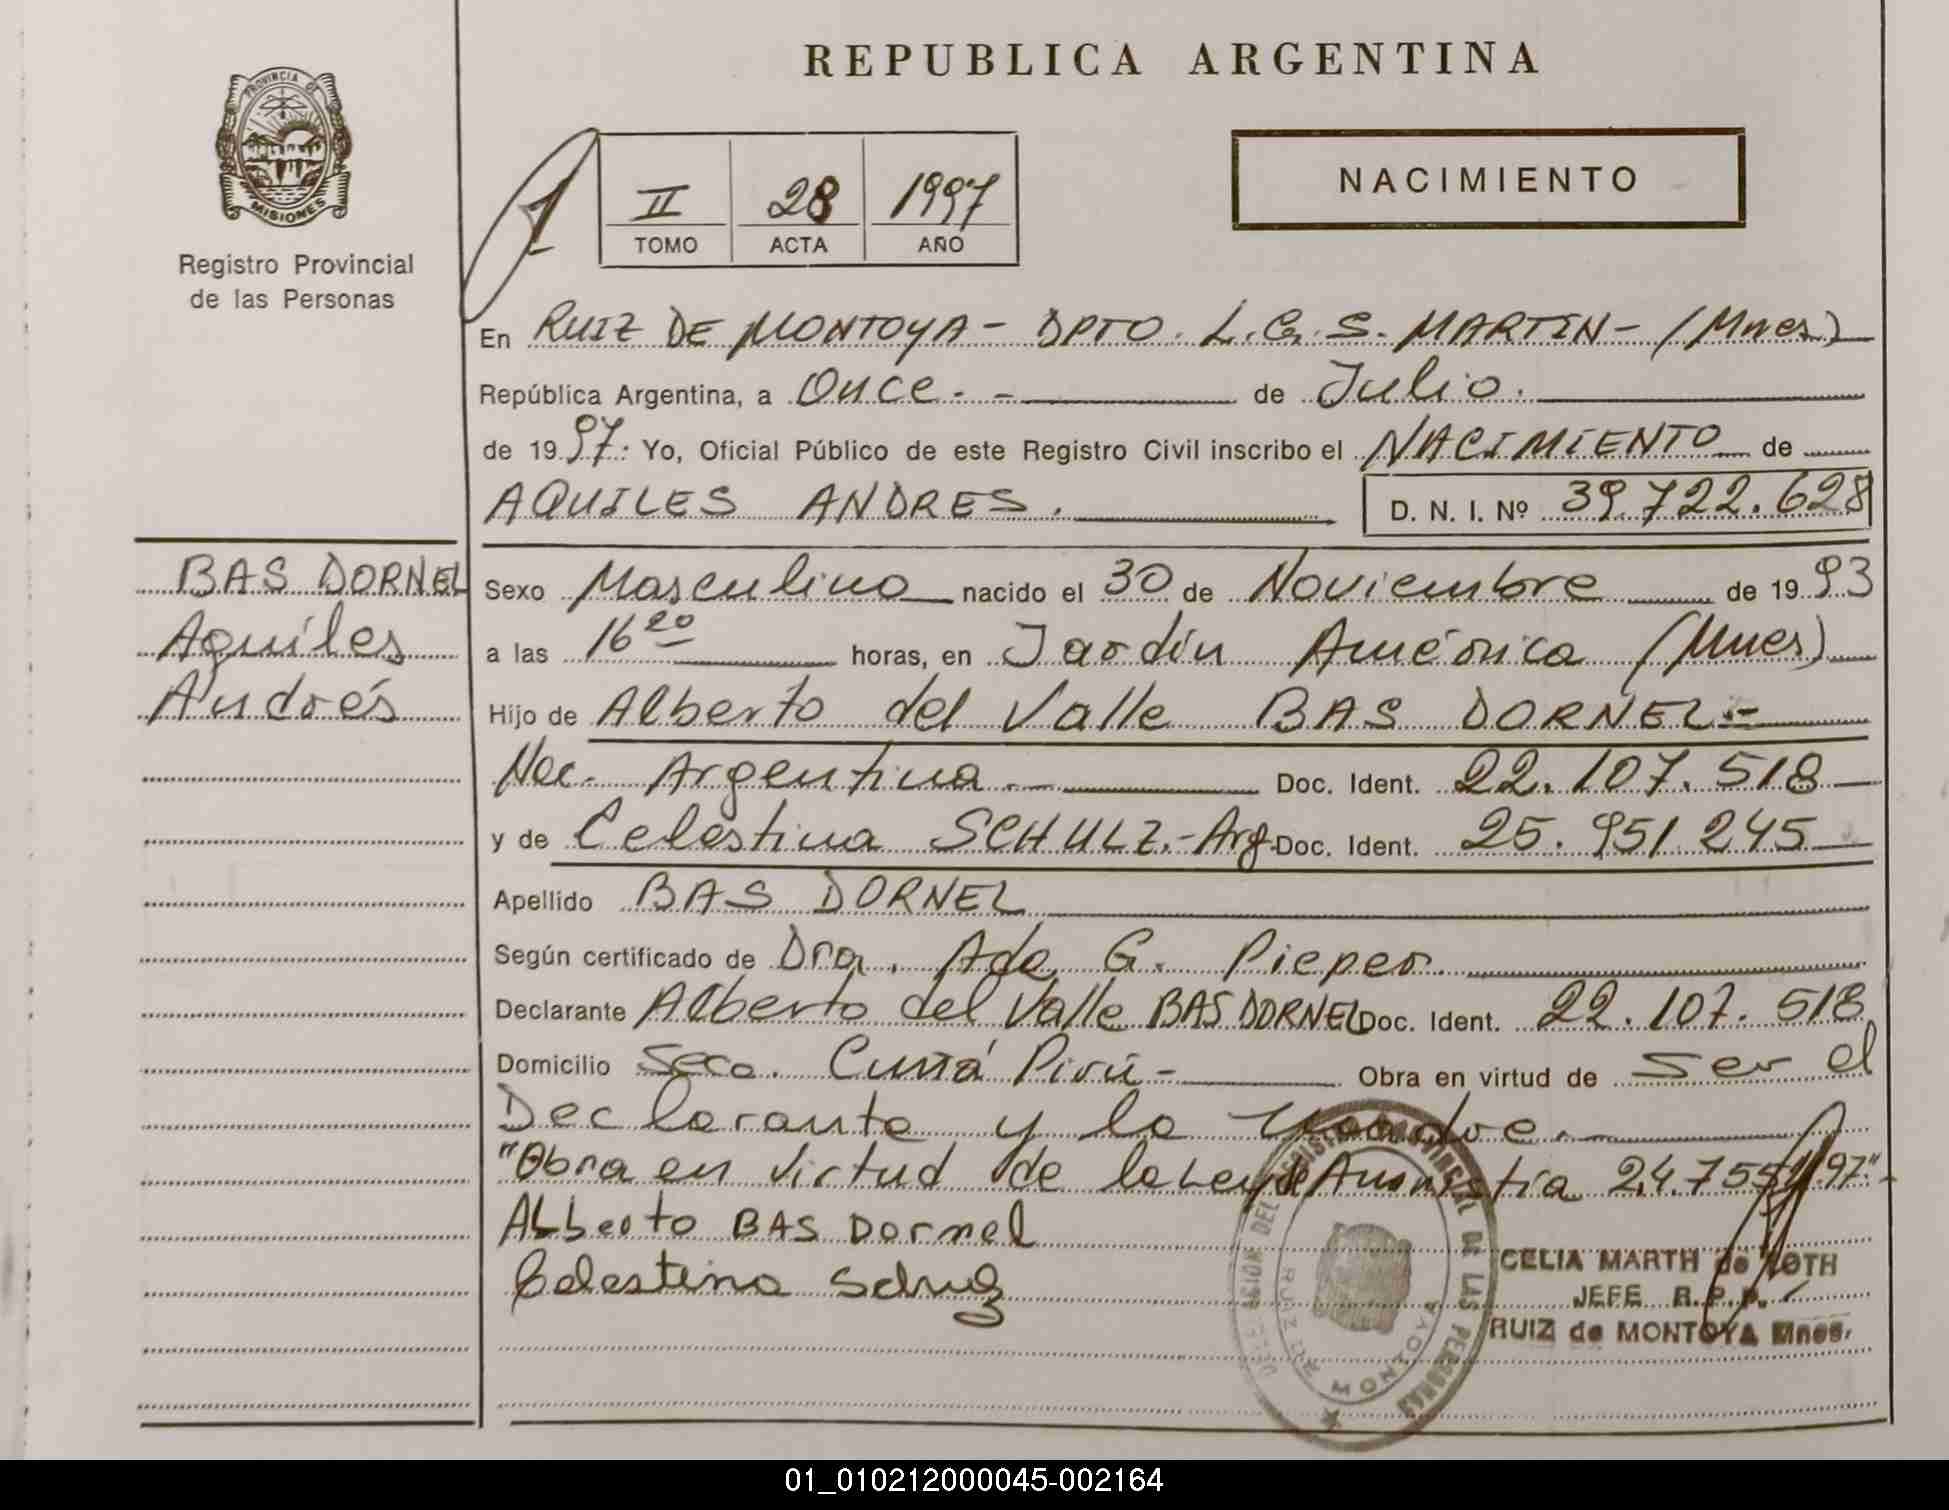 REPUBLICA ARGENTINA
PROVINCIA DE
MISIONES
Registro Provincial
de las Personas
1
II 28 1997
TOMO ACTA AÑO
NACIMIENTO
En RUIZ DE MONTOYA - DPTO. L.G.S. MARTIN - (Mnes)
República Argentina, a Once.- de Julio.
de 1997. Yo, Oficial Público de este Registro Civil inscribo el NACIMIENTO de
AQUILES ANDRES. D. N. I. Nº 39.722.628
BAS DORNEL
Aquiles
Andrés
Sexo Masculino nacido el 30 de Noviembre de 1993
a las 16 20 horas, en Jardín América (Mnes)
Hijo de Alberto del Valle BAS DORNEL.-
Nac. Argentina.- Doc. Ident. 22.107.518
y de Celestina SCHULZ.-Arg. Doc. Ident. 25.951.245
Apellido BAS DORNEL
Según certificado de Dra. Ada G. Pieper.
Declarante Alberto del Valle BAS DORNEL Doc. Ident. 22.107.518
Domicilio Secc. Cuñá Pirú - Obra en virtud de ser el
Declarante y la madre.
"Obra en virtud de la Ley de Amnistía 24.755/97"-
Alberto BAS Dornel
Celestina Schulz
DELEGACION DEL REGISTRO PROVINCIAL DE LAS PERSONAS
RUIZ DE MONTOYA
CELIA MARTH de ROTH
JEFE R.P.P.
RUIZ de MONTOYA Mnes.
01_010212000045-002164